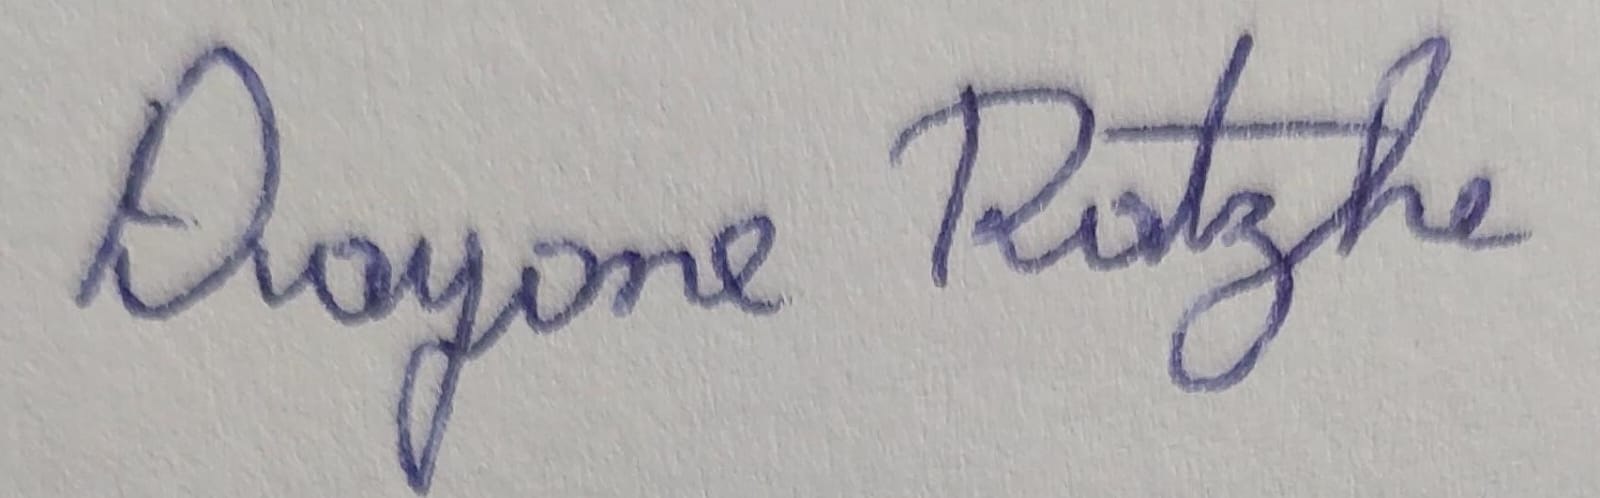 Dayane Ratzke